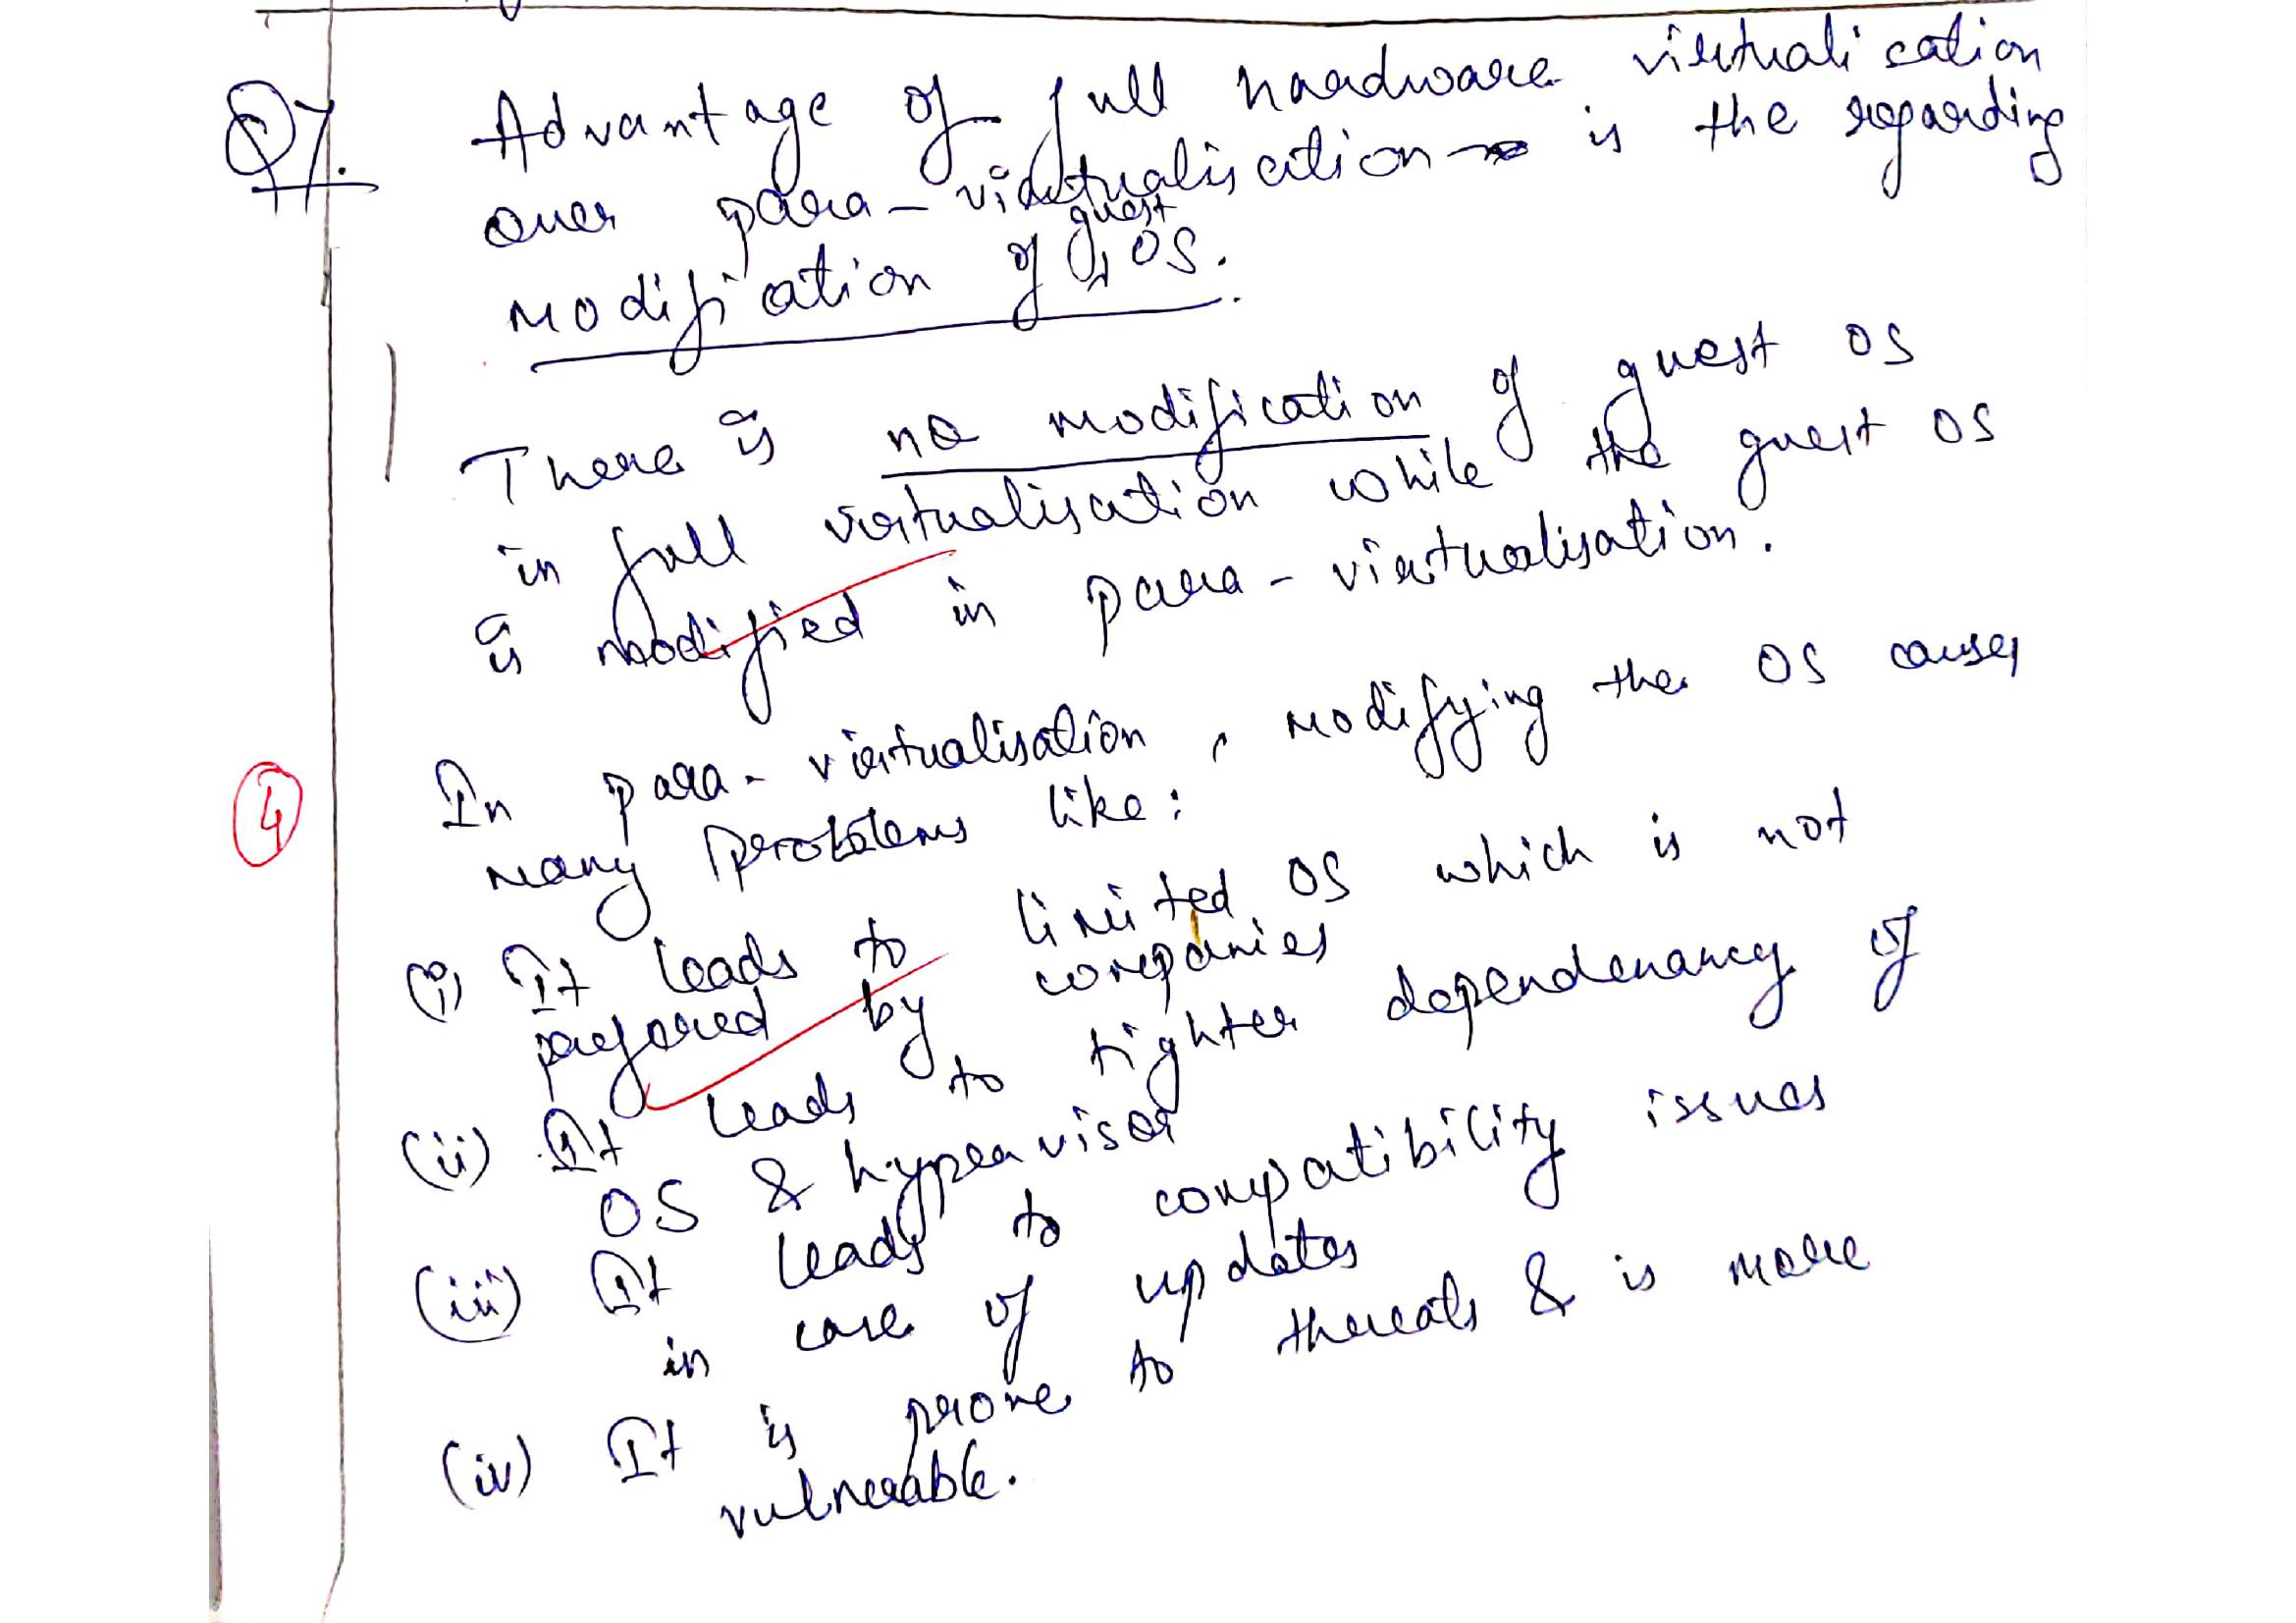 Q7. Advantage of full hardware virtualisation
over para-virtualisation is the regarding
modification of guest OS.
There is no modification of guest OS
in full virtualisation while the guest OS
is modified in para-virtualisation.
In para-virtualisation, modifying the OS causes
many problems like:
(i) It leads to limited OS which is not
prefored by companies
(ii) It leads to tighter dependenancy of
OS & hypervisor
(iii) It leads to compatibility issues
in case of updates
(iv) It is prone to threats & is more
vulnerable.
4